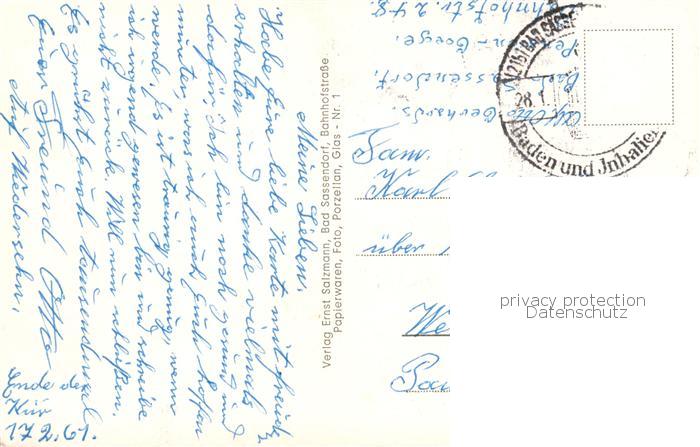 Meine Lieben.
Habe Eure liebe Karte mit Freude
erhalten und danke vielmals
dafür, ich bin noch gesund und
munter, was ich auch Euch hoffen
werde. Es ist traurig genug, wenn
ich irgend gewesen bin und schreibe
nicht zurück. Will nun schließen.
Es grüßt Euch tausendmal
Euer Freund Otto
Auf Wiedersehn.
Ende der
Kur
17.2.61.
Verlag Ernst Salzmann, Bad Sassendorf, Bahnhofstraße
Papierwaren, Foto, Porzellan, Glas - Nr. 1
Otto Gerhards
Bad Sassendorf,
Bahnhofstr. 248.
(21b) BAD SASSE
28.1.
Baden und Inhalie
Fam.
Karl
über
We
privacy protection
Datenschutz